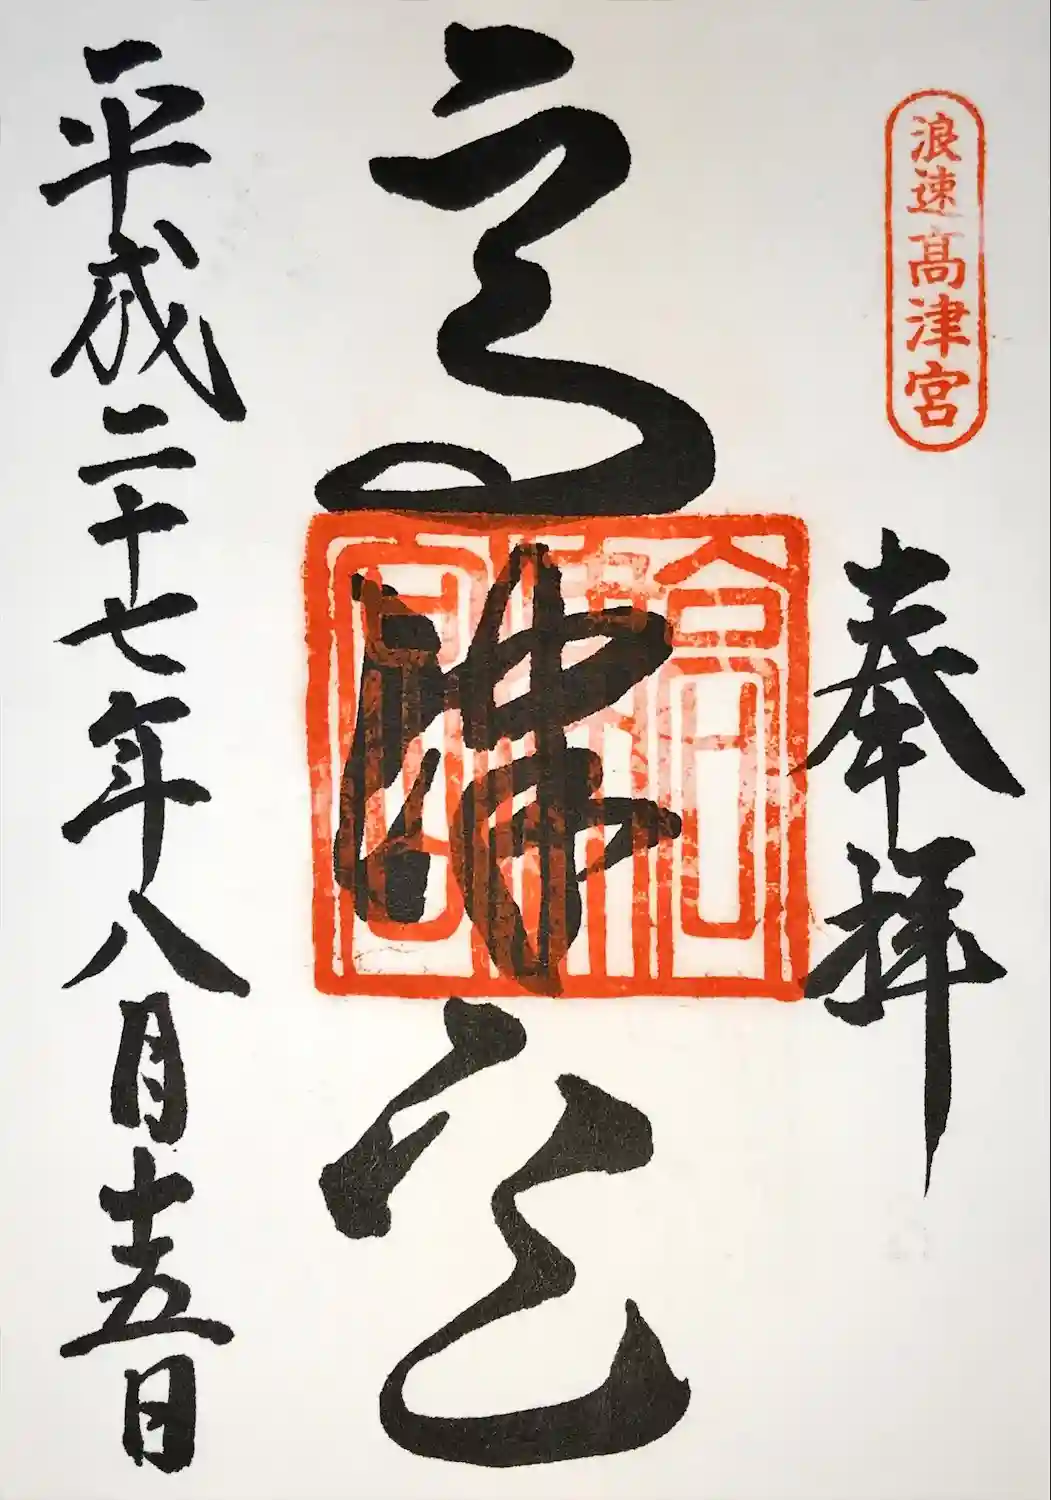 浪速高津宮
奉拝
高津宮
平成二十七年八月十五日